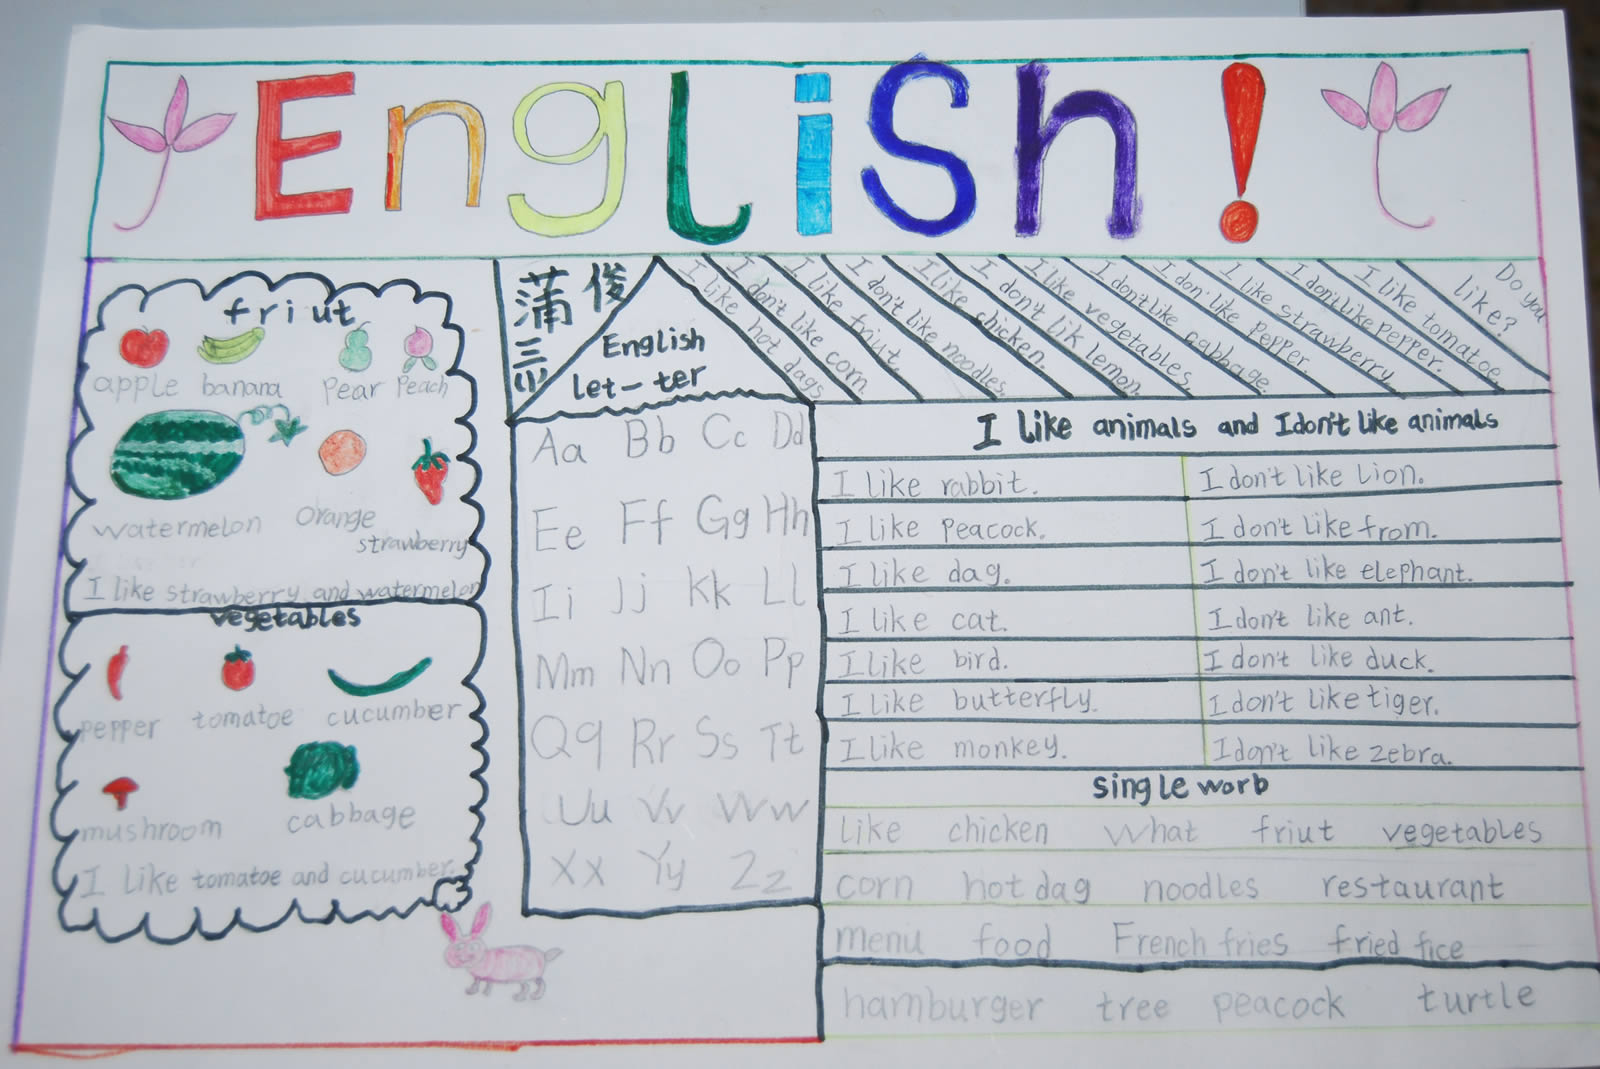 English!
friut
apple banana Pear Peach
watermelon Orange
strawberry
I like strawberry and watermelon
vegetables
pepper tomatoe cucumber
mushroom cabbage
I Like tomatoe and cucumber.
蒲俊
三(1)
English
let-ter
Aa Bb Cc Dd
Ee Ff Gg Hh
Ii Jj Kk Ll
Mm Nn Oo Pp
Qq Rr Ss Tt
Uu Vv Ww
Xx Yy Zz
I like hot dags
I don't like corn.
I like friut.
I don't like noodles.
I like chicken.
I don't lik lemon.
I like vegetables.
I don't like cabbage.
I don' like pepper.
I like strawberry.
I don't like pepper.
I like tomatoe.
Do you like?
I like animals and I don't like animals
I like rabbit. I don't like Lion.
I like peacock. I don't like from.
I like dag. I don't like elephant.
I like cat. I don't like ant.
I like bird. I don't like duck.
I like butterfly. I don't like tiger.
I like monkey. I don't like zebra.
single worb
like chicken what friut vegetables
corn hot dag noodles restaurant
menu food French fries fried fice
hamburger tree peacock turtle